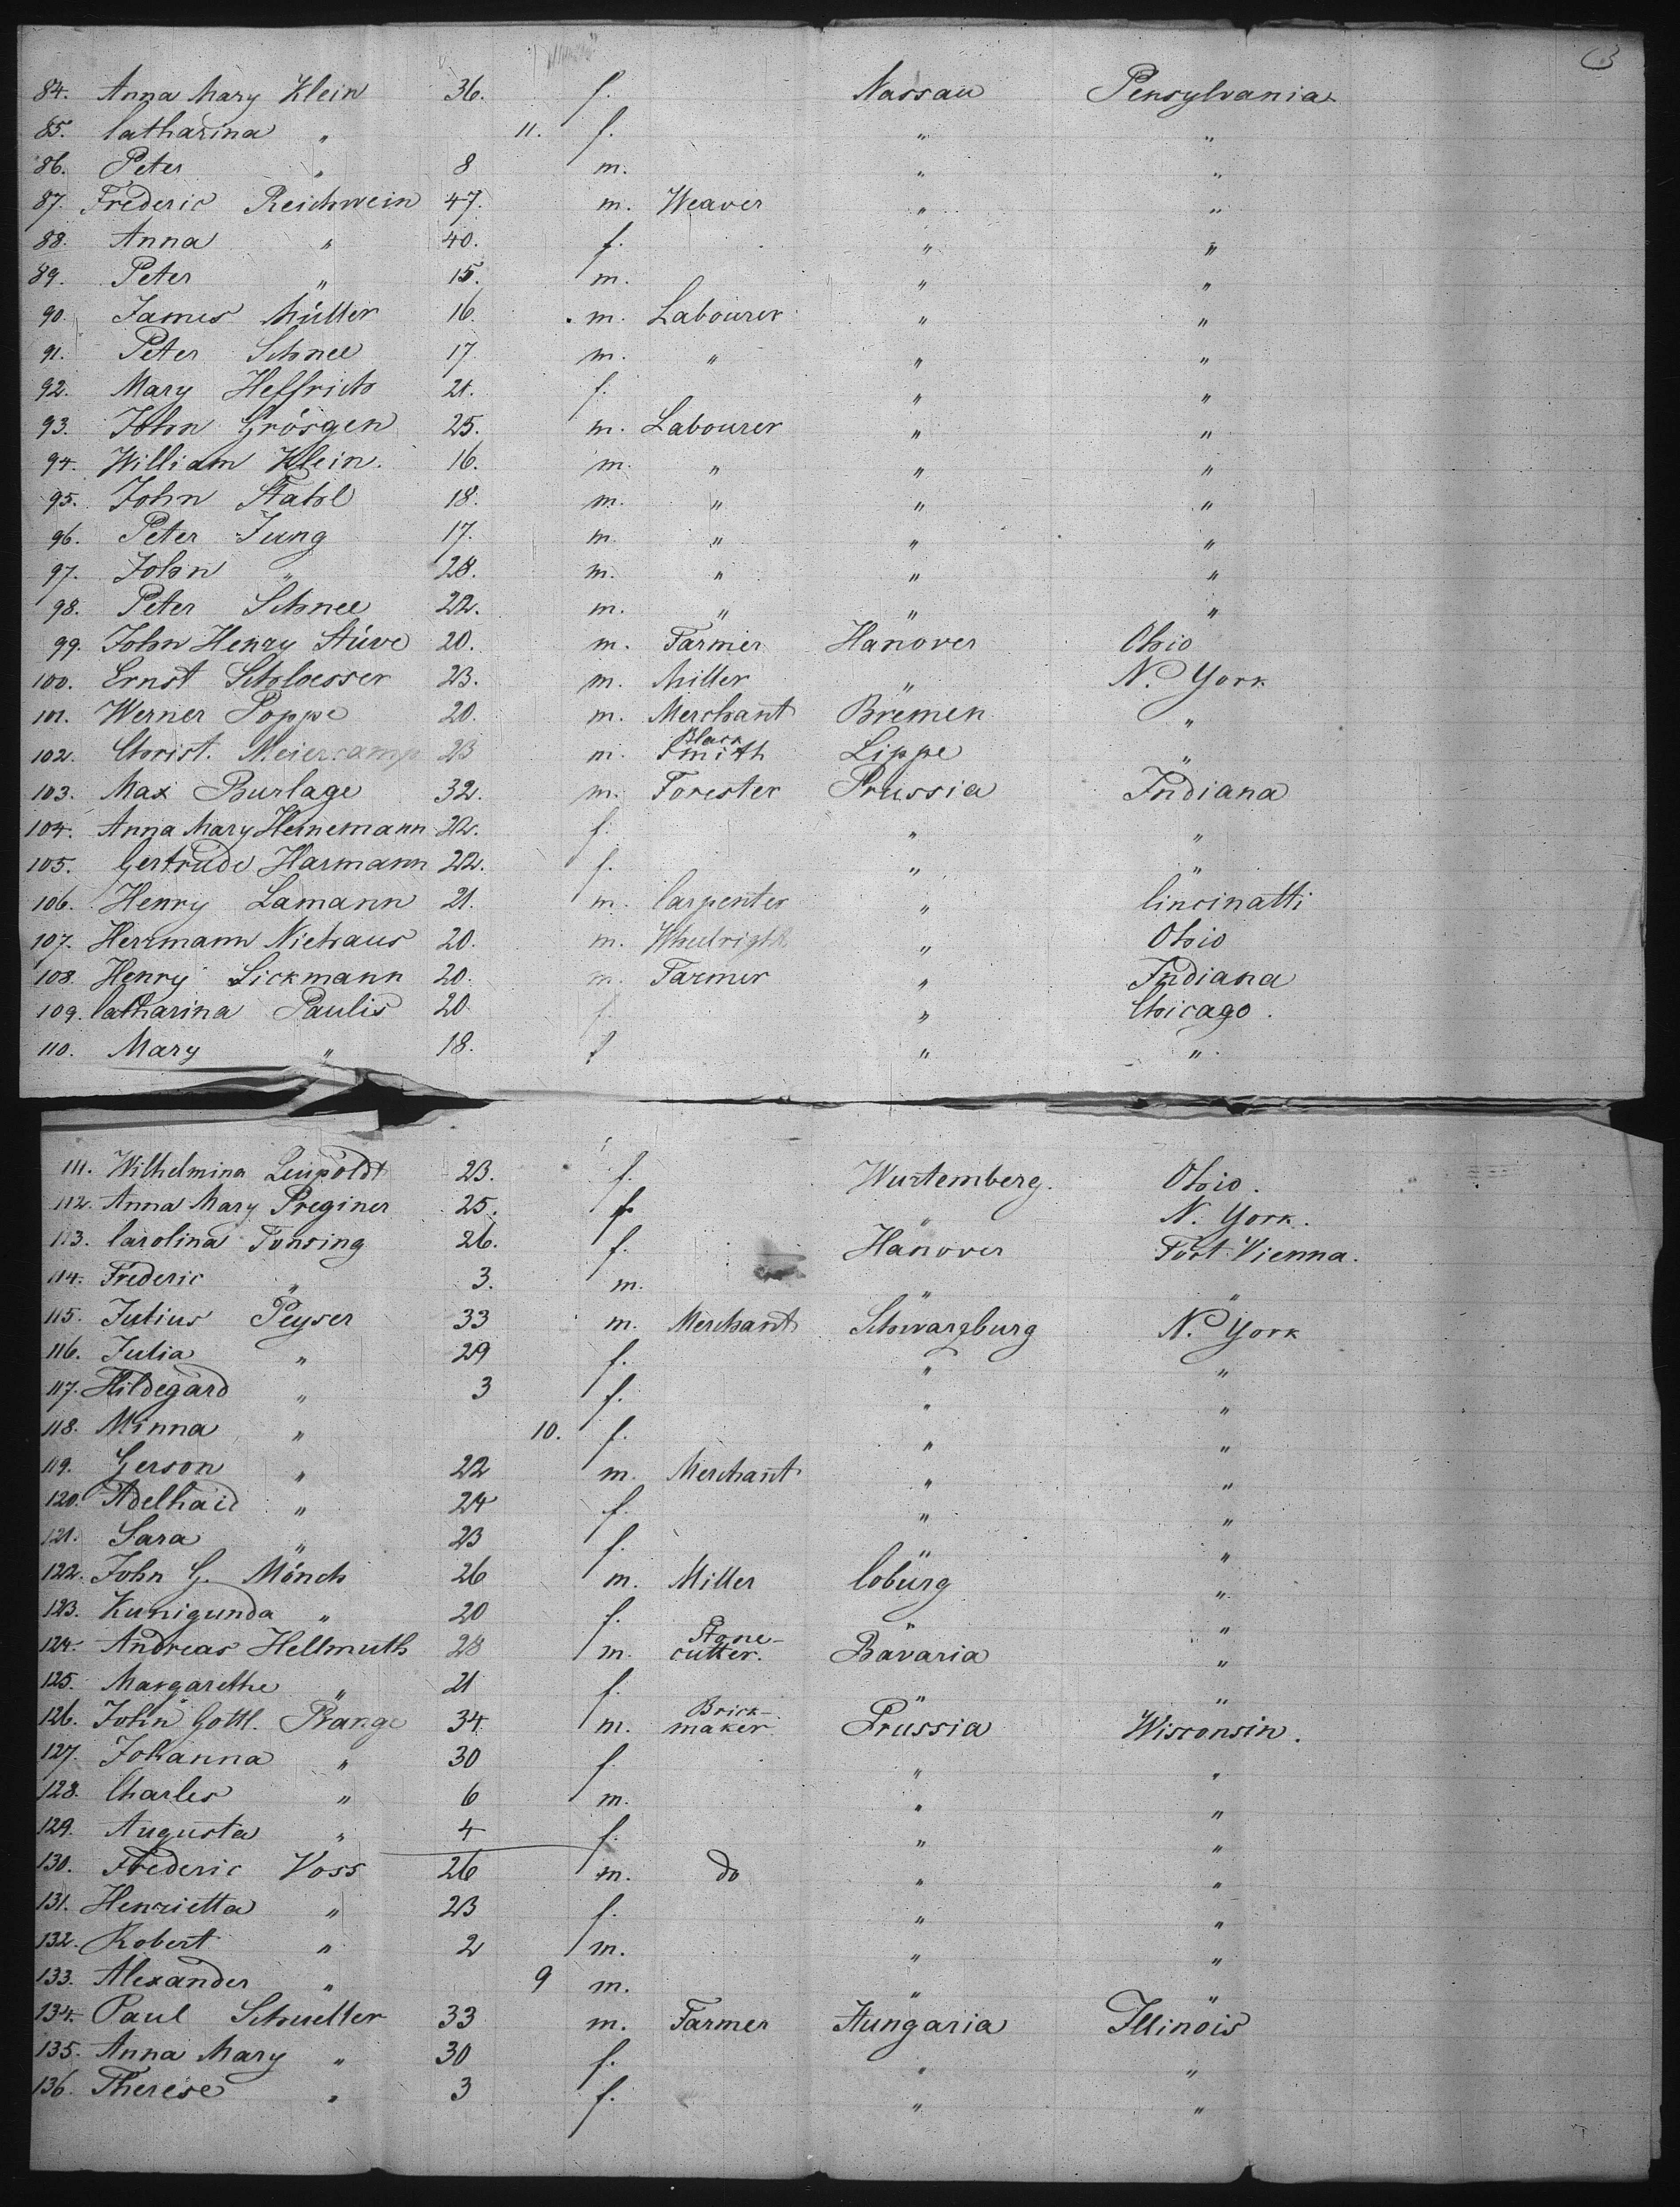 3
84. Anna Mary Klein 36. f. Nassau Pensylvania
85. Catharina " 11. f. " "
86. Peter " 8 m. " "
87. Frederic Reichwein 47. m. Weaver " "
88. Anna " 40. f. " "
89. Peter " 15. m. " "
90. James Müller 16. m. Labourer " "
91. Peter Schnee 17 m. " " "
92. Mary Helfrich 21. f. " "
93. John Grösgen 25. m. Labourer " "
94. William Klein. 16. m. " " "
95. John Stahl 18. m. " " "
96. Peter Jung 17. m. " " "
97. John " 28. m. " " "
98. Peter Schnee 22. m. " " "
99. John Henry Stüve 20. m. Farmer Hanover Ohio
100. Ernst Schloesser 23. m. Miller " N. York
101. Werner Poppe 20. m. Merchant Bremen "
102. Christ. Meiercamp 23 m. Black Smith Lippe "
103. Max Burlage 32. m. Forester Prussia Indiana
104. Anna Mary Heinemann 22. f. " "
105. Gertrude Harmann 22. f. " "
106. Henry Lamann 21. m. Carpenter " Cincinatti
107. Herrmann Niehaus 20. m. Wheelright " Ohio
108. Henry Sickmann 20. m. Farmer " Indiana
109. Catharina Paulis 20. f. " Chicago.
110. Mary " 18. f " "
111. Wilhelmina Leupoldt 23. f. Wurtemberg. Ohio.
112. Anna Mary Preginer 25. f. " N. York.
113. Carolina Tonsing 26. f. Hanover Fort Vienna.
114. Frederic " 3. m. " "
115. Julius Peyser 33 m. Merchant Schwarzburg N. York
116. Julia " 29 f. " "
117. Hildegard " 3 f. " "
118. Minna " 10. f. " "
119. Gerson " 22 m. Merchant " "
120. Adelhaid " 24 f. " "
121. Sara " 23 f. " "
122. John G. Mönch 26 m. Miller Coburg "
123. Kunigunda " 20 f. " "
124. Andreas Hellmuth 28 m. Stone-cutter. Bavaria "
125. Margarethe " 21 f. " "
126. John Gottl. Prange 34 m. Brick-maker Prussia Wisconsin.
127. Johanna " 30 f. " "
128. Charles " 6 m. " "
129. Augusta " 4 f. " "
130. Frederic Voss 26 m. do " "
131. Henrietta " 23 f. " "
132. Robert " 2 m. " "
133. Alexander " 9 m. " "
134. Paul Schueller 33 m. Farmer Hungaria Illinois
135. Anna Mary " 30 f. " "
136. Therese " 3 f. " "